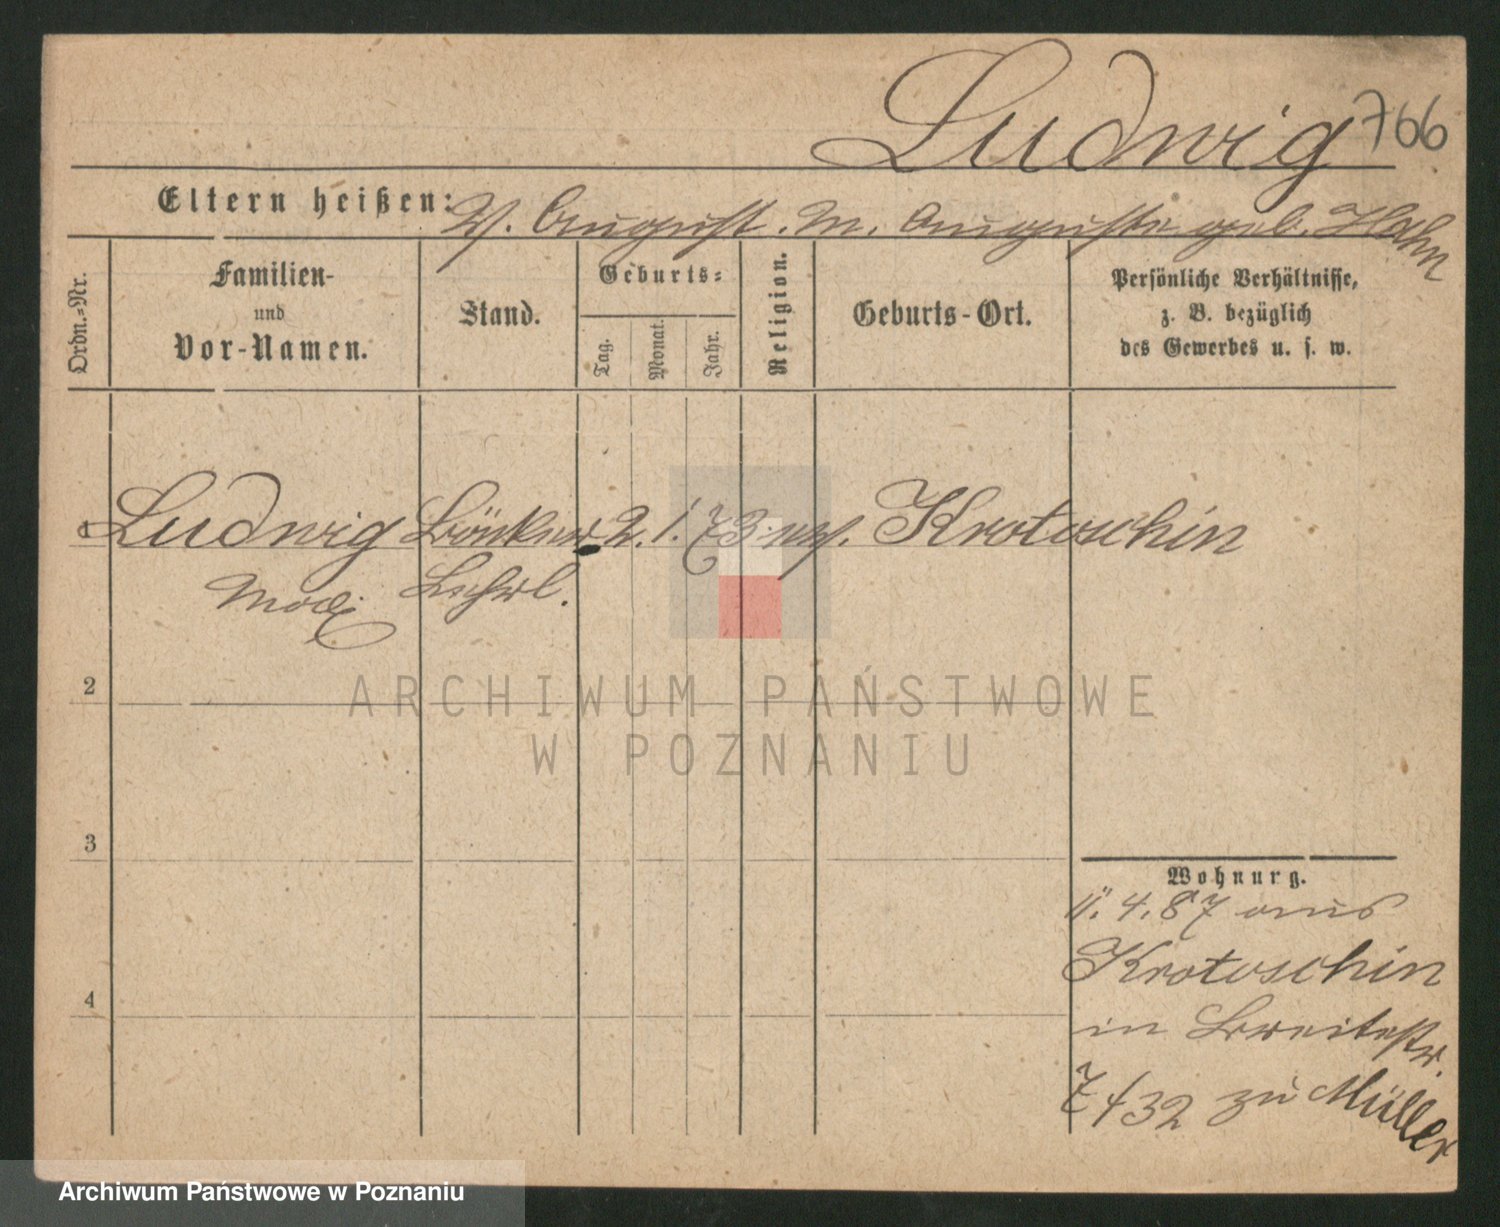 Ludwig 766
Eltern heißen: V. August. M. Auguste geb. Hahn
Ordn.=Nr.
Familien-
und
Vor-Namen.
Stand.
Geburts=
Tag.
Monat.
Jahr.
Religion.
Geburts-Ort.
Persönliche Verhältnisse,
z. B. bezüglich
des Gewerbes u. s. w.
1 Ludwig 2. 1. 73 Krotoschin
Max Lehrl.
2
3
4
Wohnurg.
11. 4. 87 aus
Krotoschin
in Breitestr.
zu Müller
ARCHIWUM PAŃSTWOWE
W POZNANIU
Archiwum Państwowe w Poznaniu